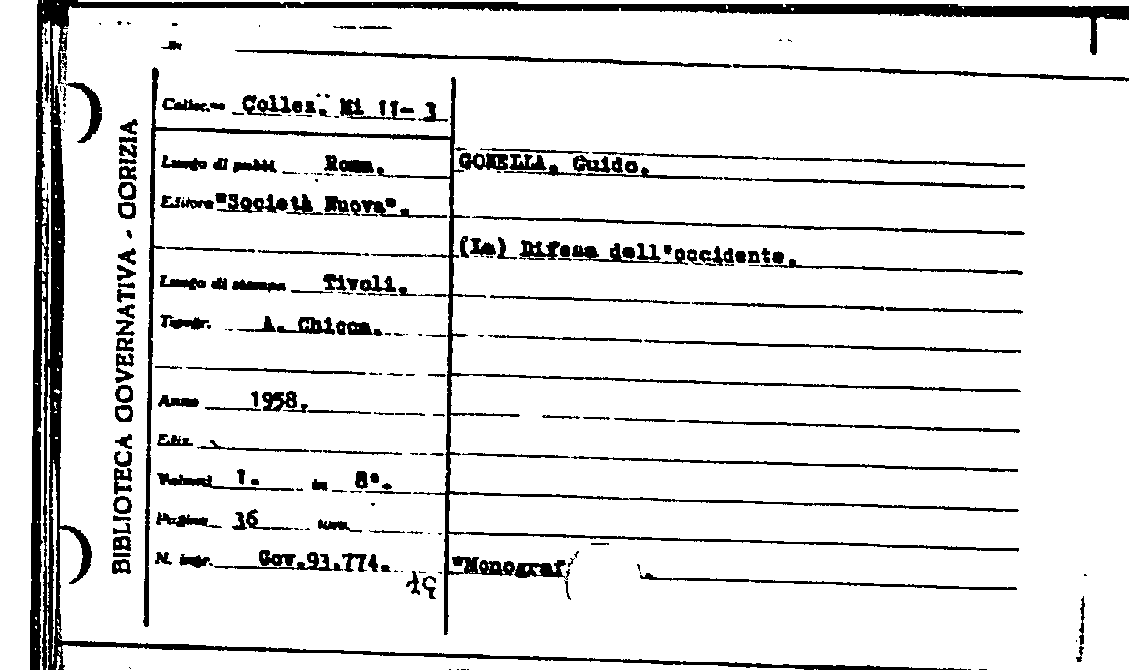 BIBLIOTECA GOVERNATIVA - GORIZIA
Collez. Mi II- 3
Luogo di pubbl. Roma.
Editore "Società Nuova".
Luogo di stampa Tivoli.
Tipogr. A. Chicca.
Anno 1958.
Ediz.
Volumi 1. in 8°.
Pagine 36
N. ingr. Gov.93.774.
GONELLA, Guido.
(La) Difesa dell'occidente.
"Monograf